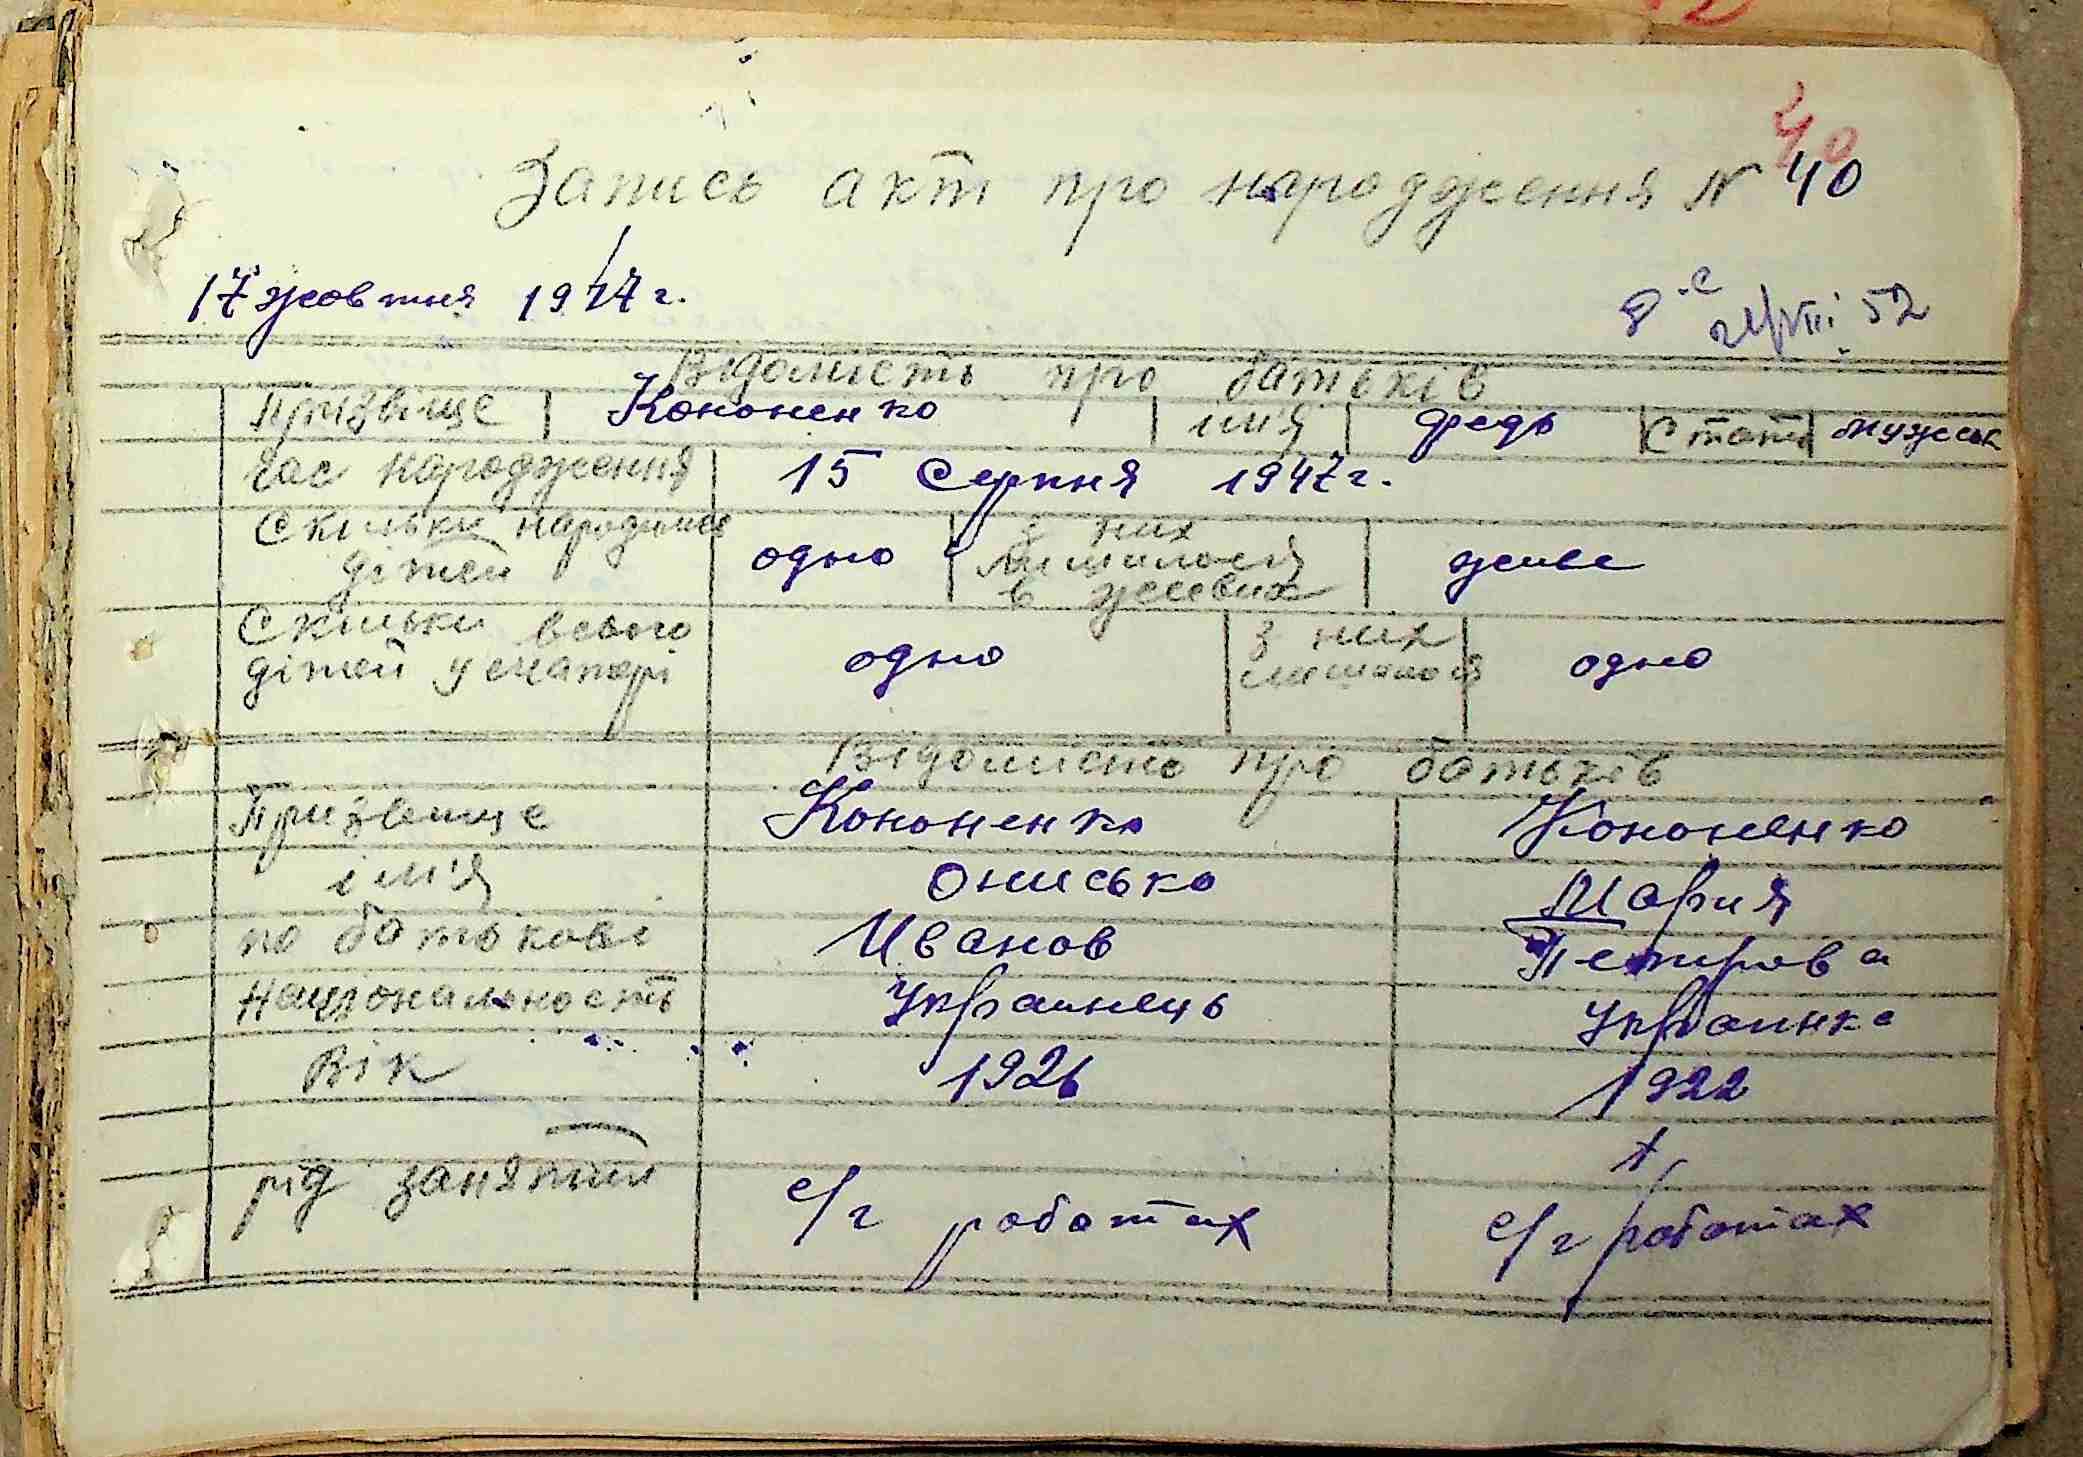 40
Запись акт про народження N 40
17 жовтня 1947 г.
52
Відомість про батьків
Призвіще Кононенко ім'я Федь Стать мужеск
Час народження 15 Серпня 1947 г.
Скільки народилось дітей одно з них лишилося в живих живе
Скільки всього дітей у матері одно з них лишилося одно
Відомість про батьків
Призвище Кононенко Кононенко
ім'я Онисько Мария
по батькові Иванов Петрова
Національность Украинець Украинка
Вік 1926 1922
рід заняття с/г роботах с/г роботах